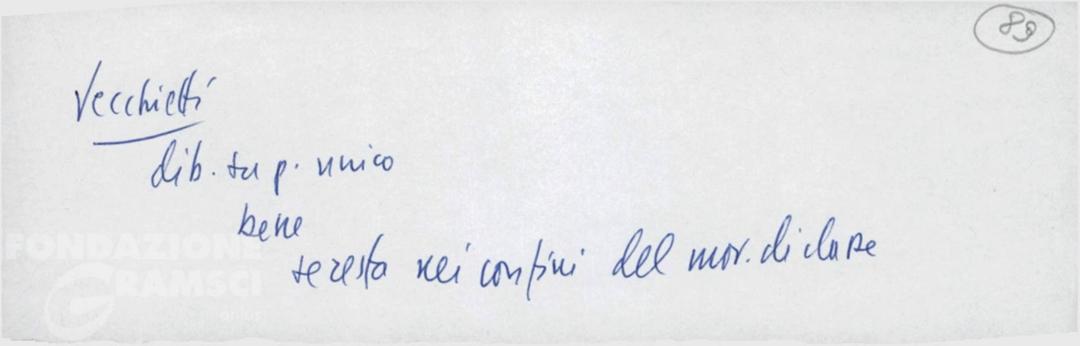 89
Vecchietti
dib. su p. unico
bene
se resta nei confini del mov. di classe
FONDAZIONE
GRAMSCI
onlus